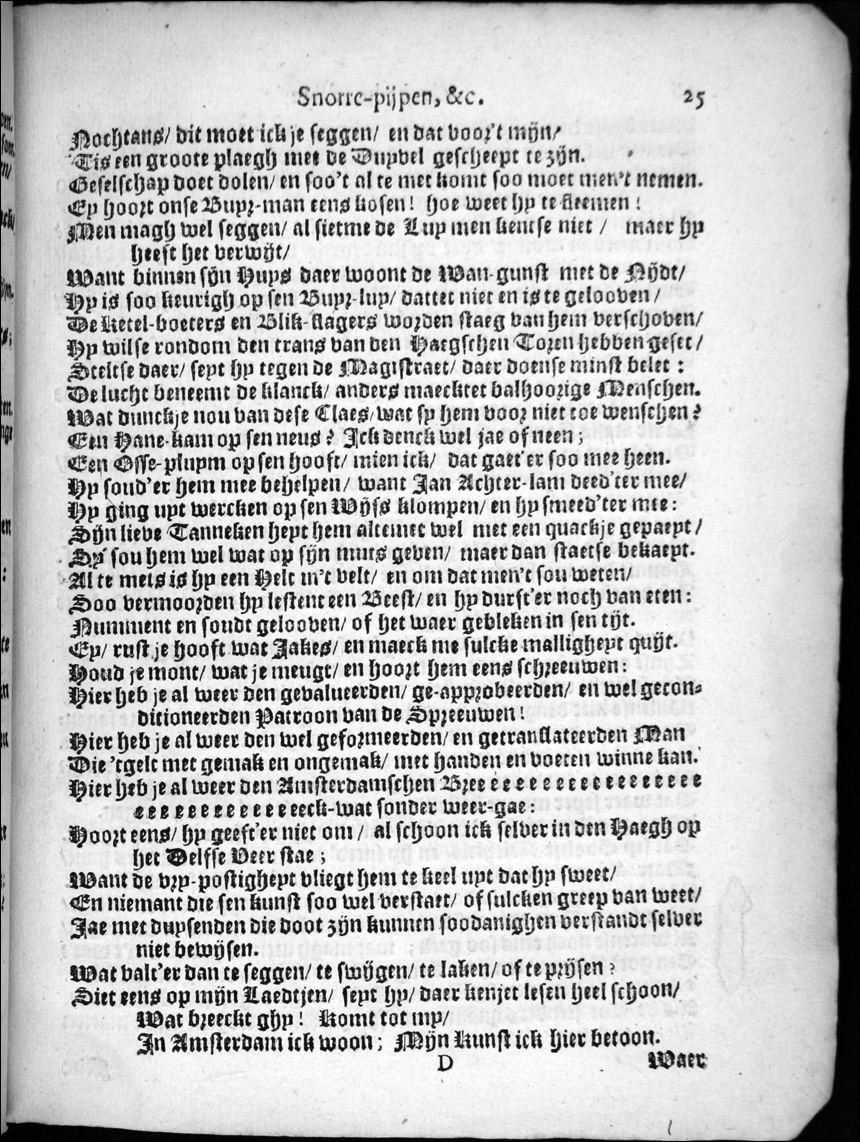 Snorre-pijpen, &c. 25
Nochtans/ dit moet ick je seggen/ en dat voor't mijn/
Tis een groote plaegh met de Duyvel gescheept te zijn.
Geselschap doet dolen/ en soo't al te met komt soo moet men't nemen.
Ey hoort onse Buyr-man eens kosen! hoe weet hy te fleemen!
Men magh wel seggen/ al sietme de Luy men kentse niet / maer hy
heeft het verwijt/
Want binnen sijn Huys daer woont de Wan-gunst met de Nijdt/
Hy is soo keurigh op sen Buyr-luy/ dattet niet en is te gelooven /
De Ketel-boeters en Blik-slagers worden staeg van hem verschoven/
Hy wilse rondom den trans van den Haegschen Toren hebben geset/
Steltse daer/ seyt hy tegen de Magistraet/ daer doense minst belet:
De lucht beneemt de klanck/ anders maecktet balhoorige Menschen.
Wat dunckje nou van dese Claes/ wat sy hem voor niet toe wenschen?
Een Hane-kam op sen neus? Ick denck wel jae of neen;
Een Osse-pluym op sen hooft/ mien ick/ dat gaet'er soo mee heen.
Hy soud'er hem mee behelpen/ want Jan Achter-lam deed'ter mee/
Hy ging uyt wercken op sen Wijfs klompen/ en hy smeed'ter mee:
Sijn lieve Tanneken heyt hem altemet wel met een quackje gepaeyt/
Sy sou hem wel wat op sijn muts geven/ maer dan staetse bekaeyt.
Al te mets is hy een Helt in't velt/ en om dat men't sou weten/
Soo vermoorden hy lestent een Beest/ en hy durft'er noch van eten:
Numment en soudt gelooven/ of het waer gebleken in sen tijt.
Ey/ rust je hooft wat Jakes/ en maeck me sulcke malligheyt quijt.
Houd je mont/ wat je meugt/ en hoort hem eens schreeuwen:
Hier heb je al weer den gevalueerden/ ge-approbeerden/ en wel gecon-
ditioneerden Patroon van de Spreeuwen!
Hier heb je al weer den wel geformeerden/ en getranslateerden Man
Die 'tgelt met gemak en ongemak/ met handen en voeten winne kan.
Hier heb je al weer den Amsterdamschen Bree e e e e e e e e e e e e e e e e
e e e e e e e e e e e e eeck-wat sonder weer-gae:
Hoort eens/ hy geeft'er niet om / al schoon ick selver in den Haegh op
het Delfse Veer stae;
Want de vry-postigheyt vliegt hem te keel uyt dat hy sweet/
En niemant die sen kunst soo wel verstaet/ of sulcken greep van weet/
Jae met duysenden die doot zijn kunnen soodanighen verstandt selver
niet bewijsen.
Wat valt'er dan te seggen/ te swijgen/ te laken/ of te prijsen?
Siet eens op mijn Laedtjen/ seyt hy/ daer kenjet lesen heel schoon/
Wat breeckt ghy! Komt tot my/
In Amsterdam ick woon; Mijn Kunst ick hier betoon.
D Waer